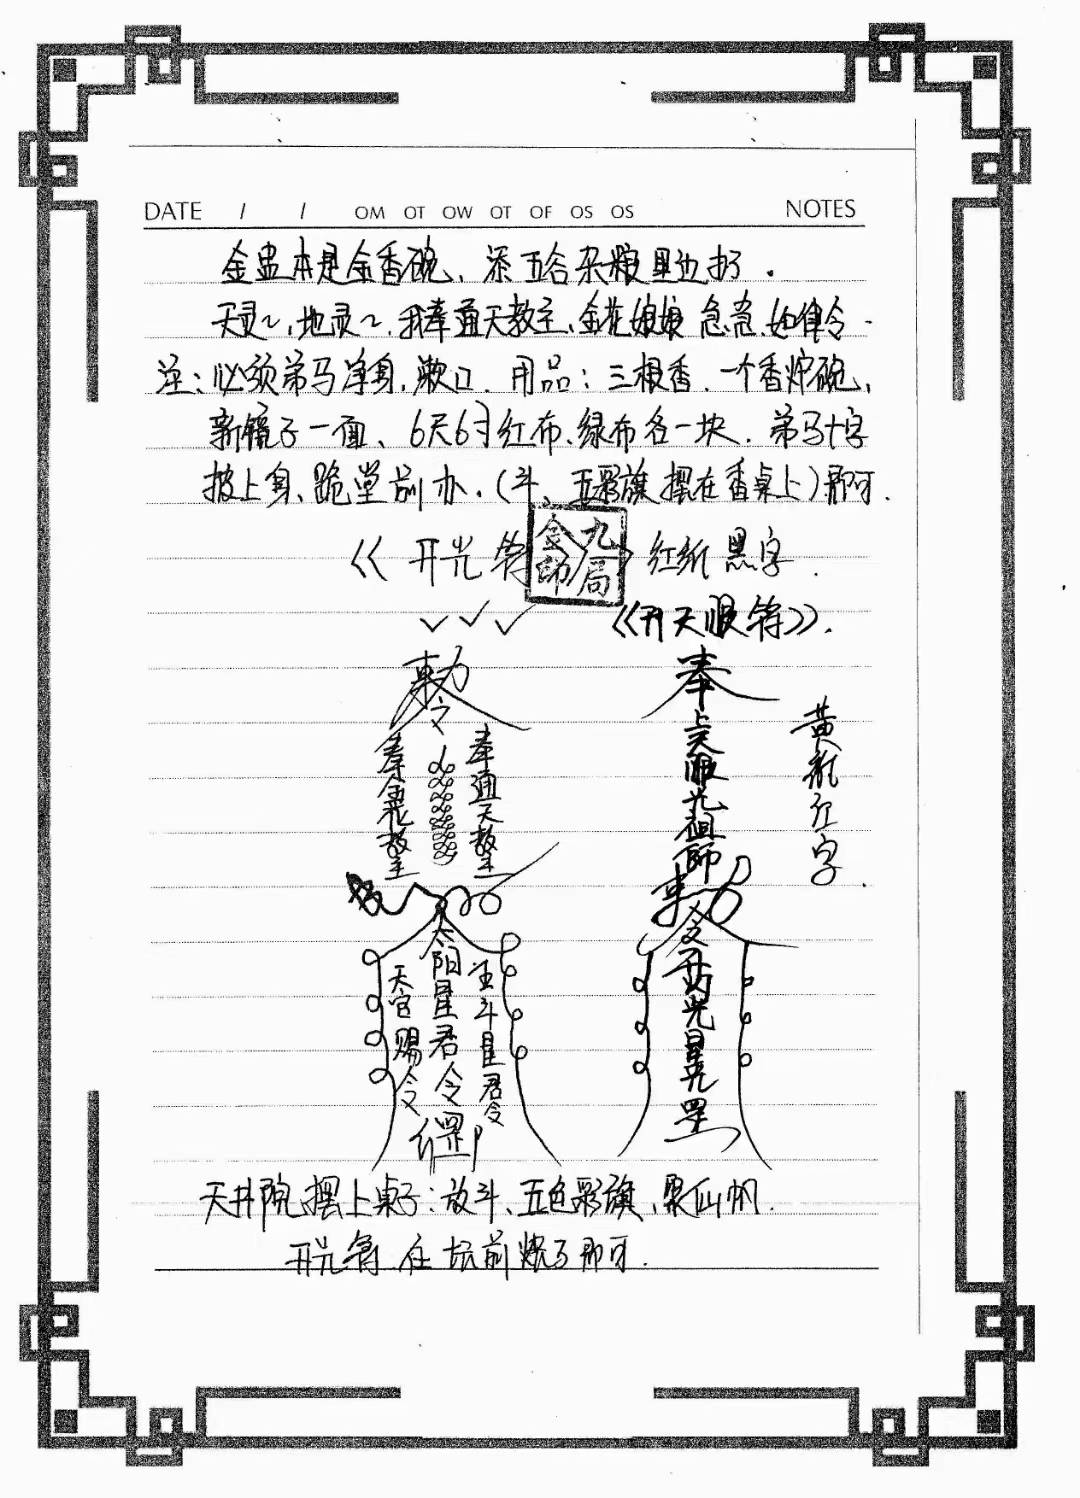 DATE / / OM OT OW OT OF OS OS NOTES
金盅本是金香碗、添五谷杂粮里边扔.
天灵~,地灵~,我奉通天教主、金花娘娘 急急如律令.
注:必须弟马净身,漱口. 用品:三根香. 一个香炉碗,
新镜子一面、6尺6寸红布、绿布各一块. 弟马十字
披上身、跪堂前办.(斗、五彩旗 摆在香桌上)即可.
《 开光符 》 红纸 黑字.
九局
金印
《开天眼符》.
敕令
奉通天教主
奉金花教主
太阳星君令 罡
天官赐令
斗星君令
奉
上天眼光祖师
敕令
光星光罡
黄纸红字.
天井院、摆上桌子:放斗、五色彩旗、聚仙帆.
开光符 在坑前烧了即可.